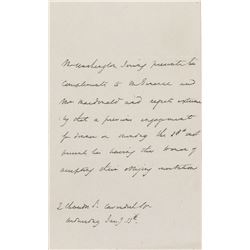 Mr Washington Irving presents his
compliments to Mr Pearce and
Mr Macdonald and regrets extreme
ly that a previous engagement
for dinner on Monday the 18th inst
prevents his having the honor of
accepting their obliging invitation
2 Chandos St. Cavendish Sq
Wednesday Jany 13th.